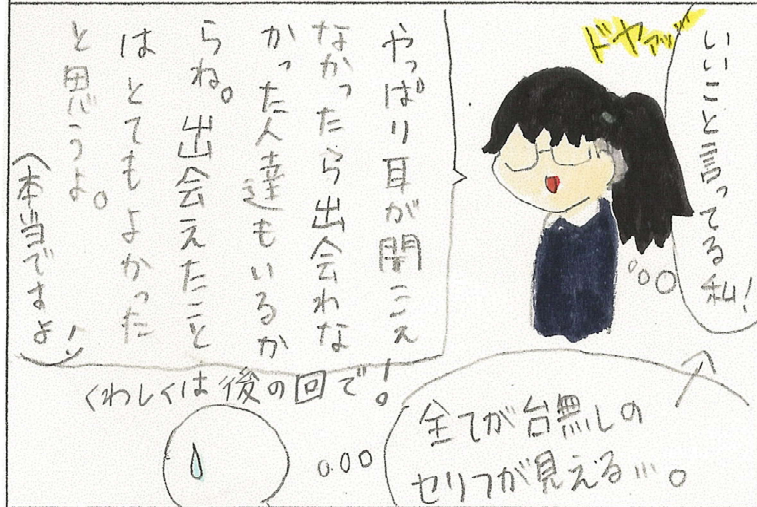 いいこと言ってる私!
ドヤアッッ
やっぱり耳が聞こえ
なかったら出会わな
かった人達もいるか
らね。出会えたこと
はとてもよかった
と思うよ。
(本当ですよ!)
くわしくは後の回で!
全てが台無しの
セリフが見える…。